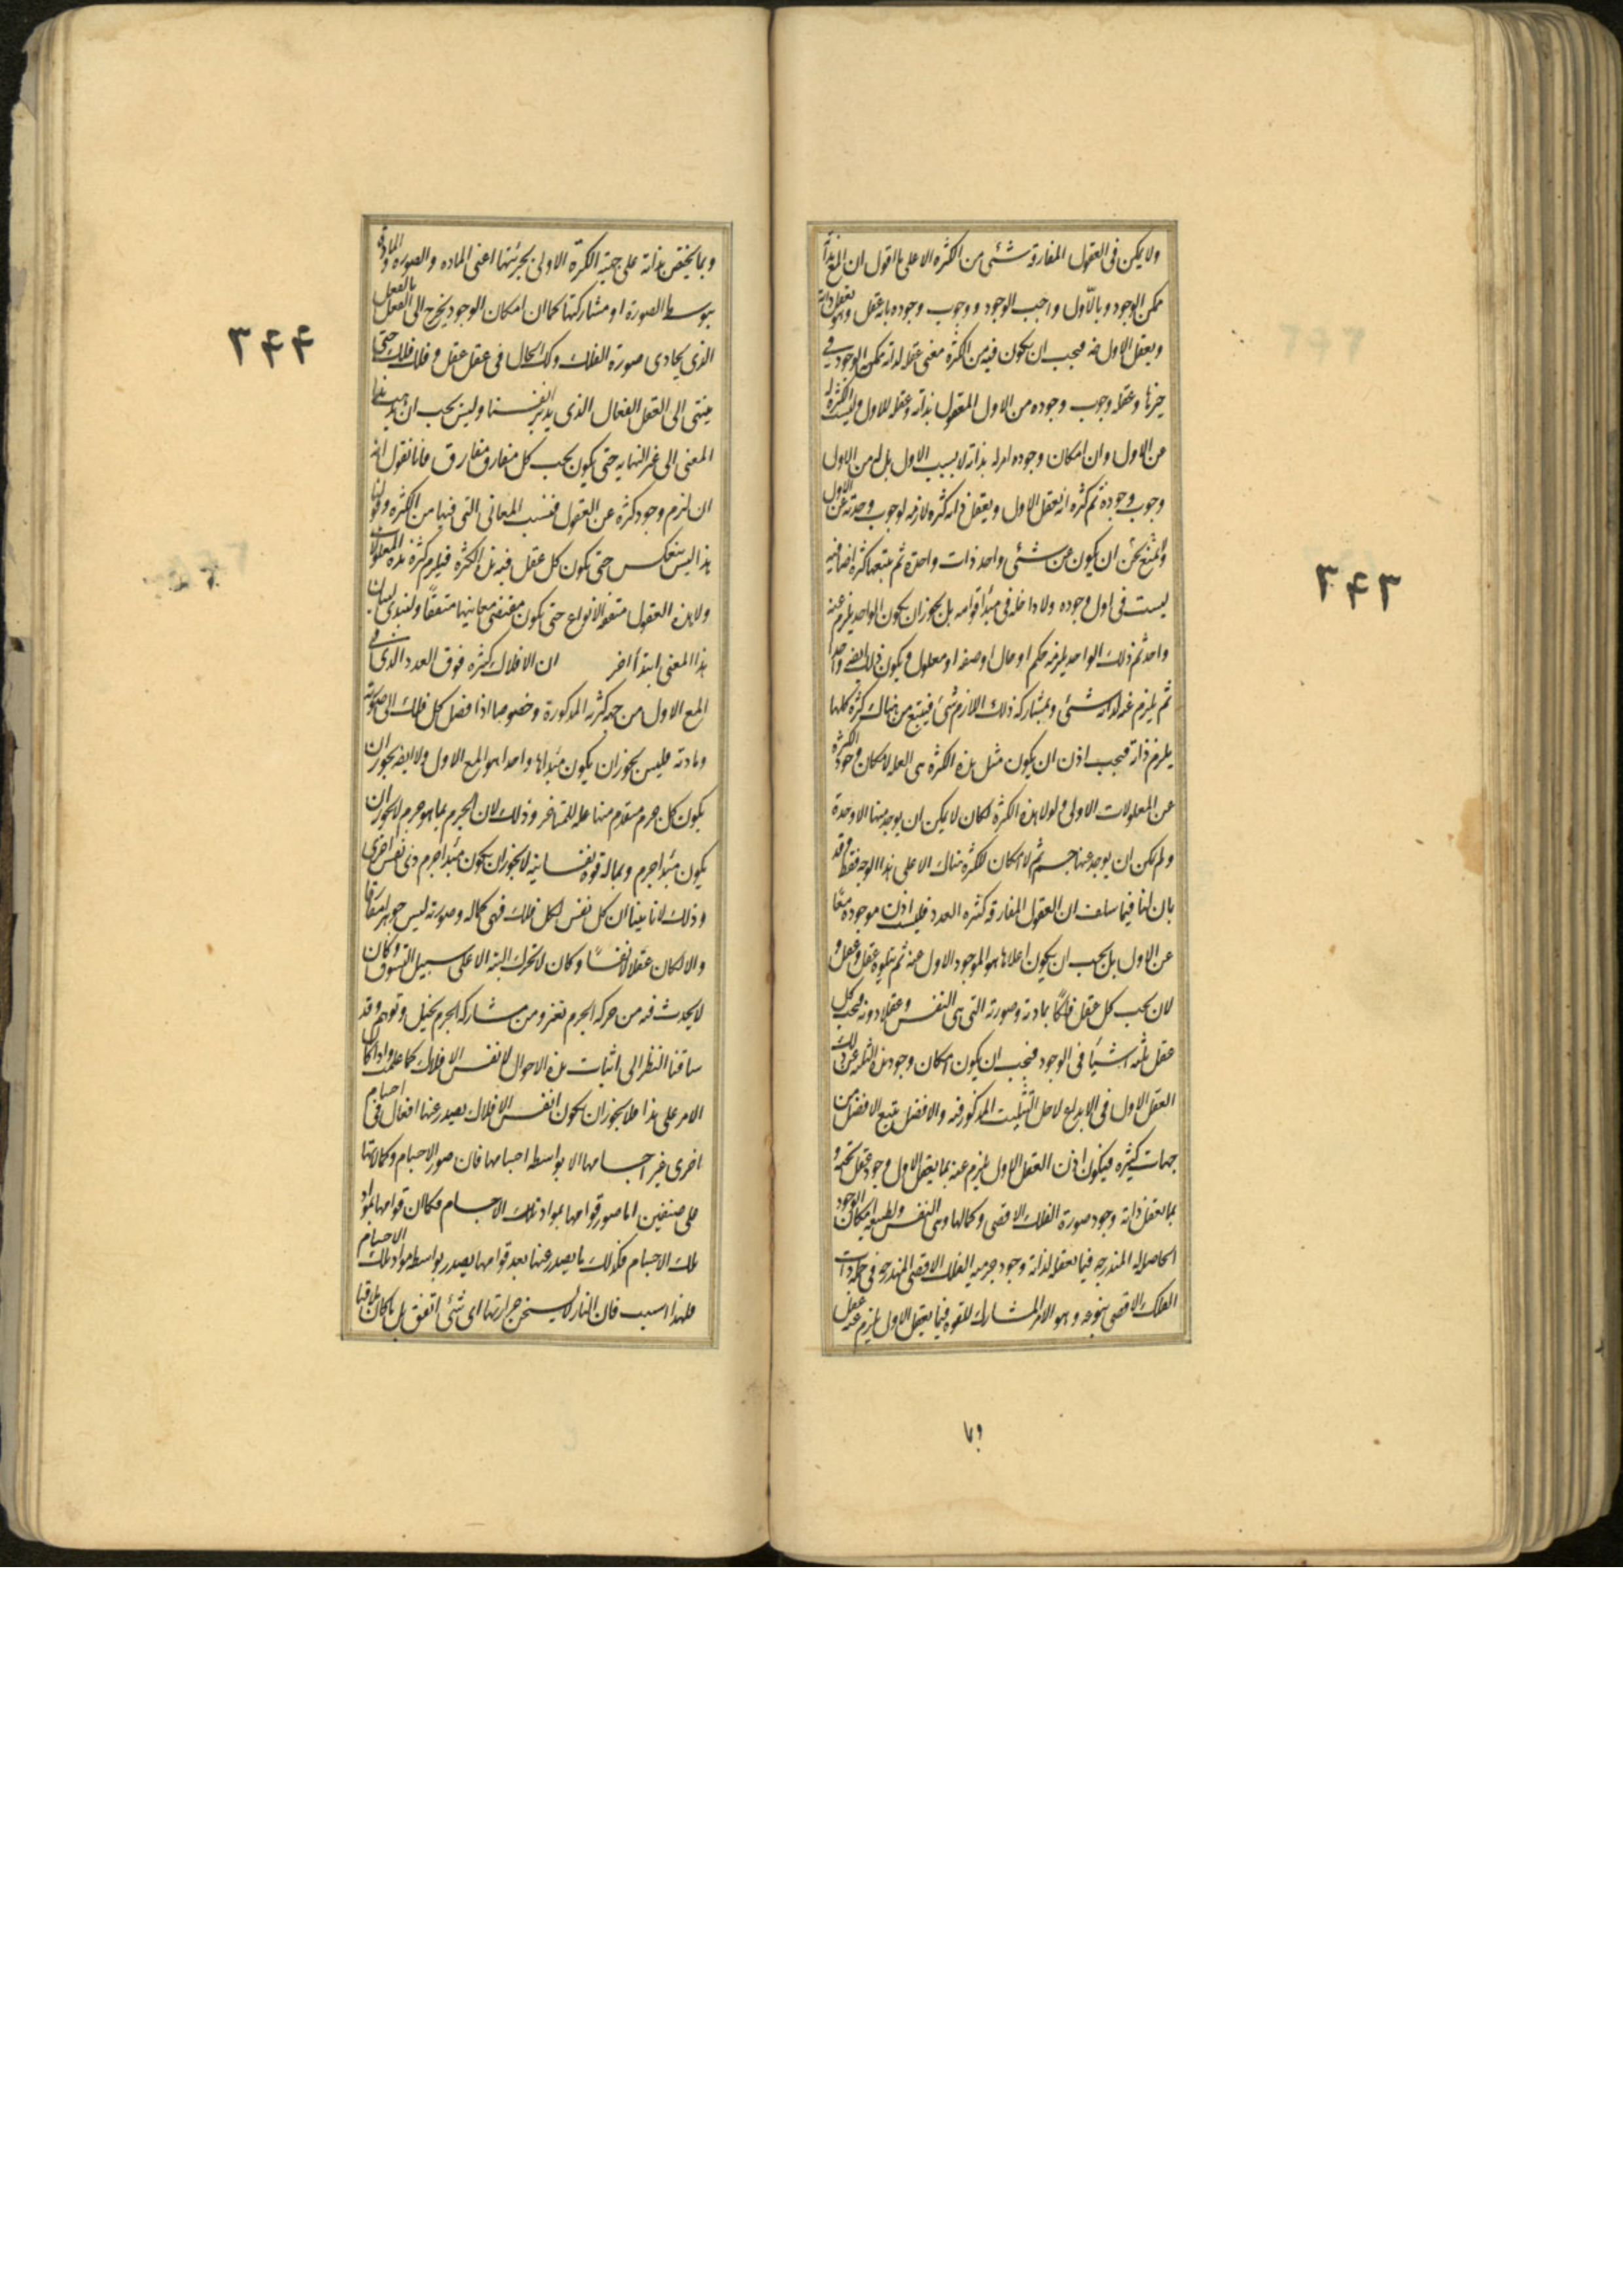 ولا يمكن فى العقول المفارقة شئ من الكثره الا على ما اقول ان المع بذاته
ممكن الوجود وبالاول واجب الوجود ووجوب وجوده بانه عقل وهو يعقل ذاته
ويعقل الاول ضه فيجب ان يكون فيه من الكثرة معنى عقله لذاته ممكن الوجود فى
حيزها وعقله وجوب وجوده من الاول المعقول بذاته وعقله للاول وليست الكثرة له
من الاول وان امكان وجوده امر له بذاته لا بسبب الاول بل له من الاول
وجوب وجوده ثم كثره انه يعقل الاول ويعقل ذاته كثره لازمه لوجوب وحدته عن الاول
ونحن لا نمنع ان يكون عن شئ واحد ذات واحدة ثم يتبعها كثرة اضافيه
ليست فى اول وجوده ولا داخله فى مبدأ قوامه بل يجوز ان يكون الواحد يلزم عنه
واحد ثم ذلك الواحد يلزمه حكم او حال او صفه او معلول ويكون ذلك ايضا واحدا
ثم يلزم عنه لذاته شئ وبمشاركه ذلك اللازم شئ فيتبع من هناك كثرة كلها
يلزم ذاته فيجب اذن ان يكون مثل هذه الكثرة هى العله لامكان وجود الكثرة
عن المعلولات الاولى ولولا هذه الكثرة لكان لا يمكن ان يوجد منها الا وحدة
ولم يكن ان يوجد عنها جسم ثم لا امكان لكثرة هناك الا على هذا الوجه فقط وقد
بان لنا فيما سلف ان العقول المفارقه كثيره العدد فليست اذن موجوده معا
عن الاول بل يجب ان يكون اعلاها هو الموجود الاول عنه ثم يتلوه عقل وعقل و
لان تحت كل عقل فلكا بمادته وصورته التى هى النفس وعقلا دونه فتحت كل
عقل ثلثه اشياء فى الوجود فيجب ان يكون امكان وجود هذه الثلثه عن ذلك
العقل الاول فى الابداع لاجل التثليث المذكور فيه والافضل يتبع الافضل من
جهات كثيره فيكون اذن العقل الاول يلزم عنه بما يعقل الاول وجود عقل تحته و
بما يعقل ذاته وجود صورة الفلك الاقصى وكمالها وهى النفس وبطبيعه امكان الوجود
الحاصله له المندرجه فيما يعقله لذاته وجود جرميه الفلك الاقصى المندرجه فى جمله ذات
الفلك الاقصى بنوعه وهو الامر المشارك للقوه فبما يعقل الاول يلزم عنه عقل
وبما
٣٤٣
وبما يختص بذاته على جهتيه الكثرة الاولى بجزئيتها اعنى الماده والصوره والمادة
بتوسط الصورة او مشاركتها كما ان امكان الوجود يخرج الى الفعل بالفعل
الذى يحاذى صورة الفلك وكذلك الحال فى عقل عقل وفلك فلك حتى
ينتهى الى العقل الفعال الذى يدبر انفسنا وليس يجب ان يذهب هذا
المعنى الى غير النهايه حتى يكون تحت كل مفارق مفارق فانا نقول انه
ان لزم وجود كثرة عن العقول فبسبب المعانى التى فيها من الكثره وقولنا
هذا ليس ينعكس حتى يكون كل عقل فيه هذه الكثره فيلزم كثرته هذه المعلولات
ولا هذه العقول متفقه الانواع حتى يكون مقتضى معانيها متفقا ولنبتدى لبيان
هذا المعنى ابتدأ اخر ان الافلاك كثيره فوق العدد الذى فى
المع الاول من جهه كثرته المذكورة وخصوصا اذا فصل كل فلك الى صورته
ومادته فليس يجوز ان يكون مبدأها واحدا هو المع الاول ولا ايضا يجوز ان
يكون كل جرم متقدم منها عله للمتاخر وذلك لان الجرم بما هو جرم لا يجوز ان
يكون مبدأ جرم وبماله قوة نفسانيه لا يجوز ان يكون مبدأ جرم ذى نفس اخرى
وذلك لانا بينا ان كل نفس لكل فلك فهى كماله وصورته ليس جوهرا مفارقا
والا لكان عقلا لا نفسا وكان لا يتحرك البته الا على سبيل التشوق وكان
لا يحدث فيه من حركه الجرم تغير ومن مشاركه الجرم تخيل وتوهم وقد
ساقنا النظر الى اثبات هذه الاحوال لانفس الافلاك كما علمت واذا كان
الامر على هذا فلا يجوز ان يكون انفس الافلاك يصدر عنها افعال فى اجسام
اخرى غير اجسامها الا بواسطه اجسامها فان صور الاجسام وكمالاتها
على صنفين اما صور قوامها بمواد تلك الاجسام فكما ان قوامها بمواد
تلك الاجسام فكذلك ما يصدر عنها بعد قوامها يصدر بواسطه مواد تلك الاجسام
فلهذا السبب فان النار لا يسخن حرارتها اى شئ اتفق بل ما كان ملاقيا
٣٤٤